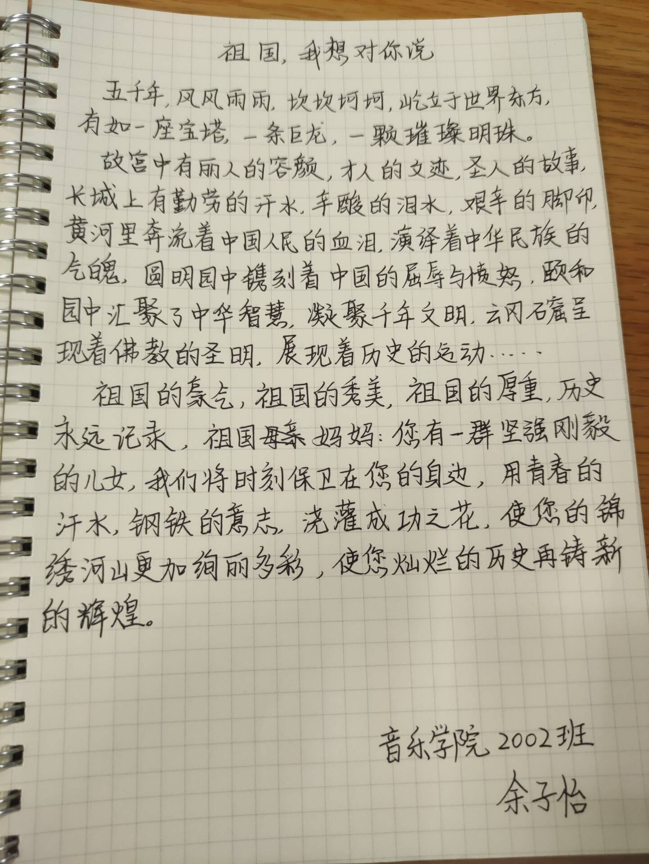 祖国,我想对你说
五千年,风风雨雨,坎坎坷坷,屹立于世界东方,
有如一座宝塔,一条巨龙,一颗璀璨明珠。
故宫中有丽人的容颜,才人的文迹,圣人的故事,
长城上有勤劳的汗水,辛酸的泪水,艰辛的脚印,
黄河里奔流着中国人民的血泪,演绎着中华民族的
气魄,圆明园中镌刻着中国的屈辱与愤怒,颐和
园中汇聚了中华智慧,凝聚千年文明,云冈石窟呈
现着佛教的圣明,展现着历史的运动……
祖国的豪气,祖国的秀美,祖国的厚重,历史
永远记录,祖国妈妈:您有一群坚强刚毅
的儿女,我们将时刻保卫在您的身边,用青春的
汗水,钢铁的意志,浇灌成功之花,使您的锦
绣河山更加绚丽多彩,使您灿烂的历史再铸新
的辉煌。
音乐学院2002班
余子怡